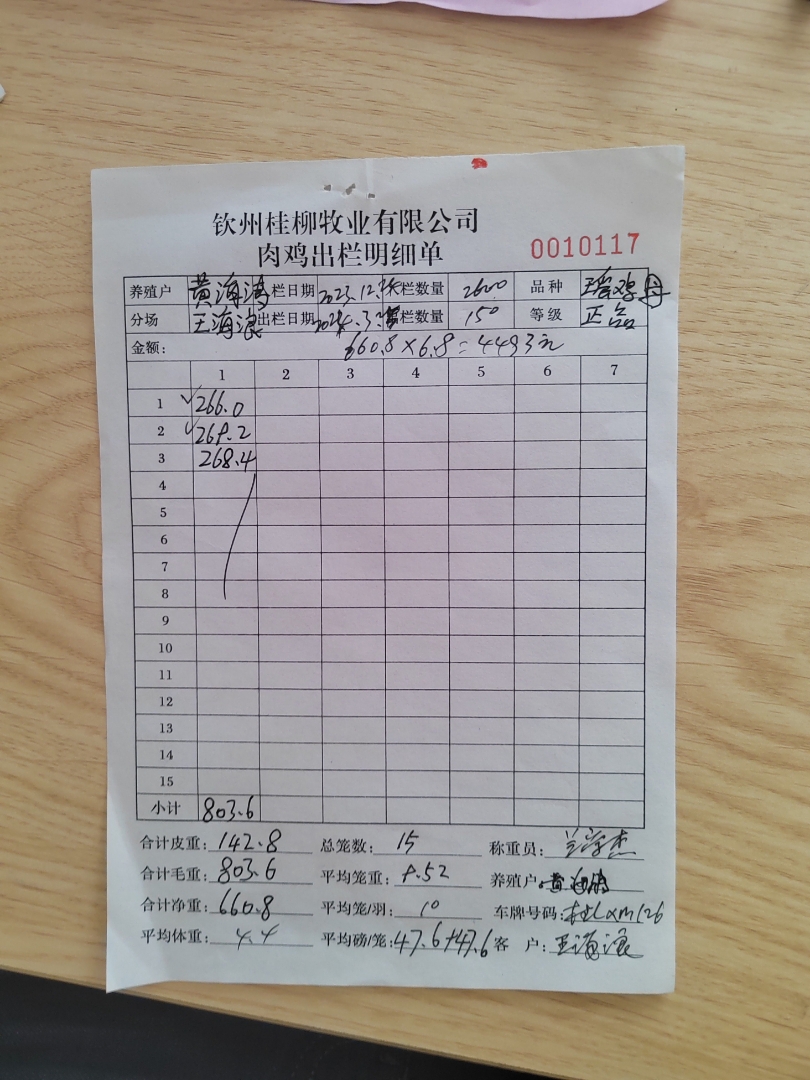 钦州桂柳牧业有限公司
肉鸡出栏明细单 0010117
养殖户 黄海鸿 栏日期 2023.12. 栏数量 2600 品种
分场 王海浪 出栏日期 2024.3. 栏数量 150 等级 正品
金额： 660.8×6.8=4493元
1 2 3 4 5 6 7
1 266.0
2 269.2
3 268.4
4
5
6
7
8
9
10
11
12
13
14
15
小计 803.6
合计皮重：142.8 总笼数：15 称重员：
合计毛重：803.6 平均笼重：9.52 养殖户：
合计净重：660.8 平均笼/羽：10 车牌号码：桂LXM126
平均体重：4.4 平均磅/笼：47.6+47.6 客 户：王海浪